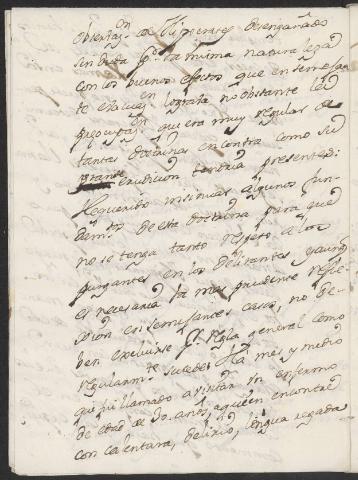 observaz.on de Hippocrates desengañado
sin duda p.r la misma naturaleza
con los buenos efectos que en semejan
te evacuaz.on lograta no obstante la
preocupaz.on que era muy regular de
tantas doctrinas en contra como su
grande erudicion tendria presentes:
He querido insinuar algunos fun-
dam.tos de esta doctrina para que
no se tenga tanto respeto a los
purgantes en los delirantes, y aunq.e
es necesaria la mas prudente refle-
xion en semejantes casos, no de-
ben excluirse p.r regla general como
regularm.te sucede. Ha mes y medio
que fui llamado a visitar un enfermo
de edad de 30. años, a quien encontre
con calentura, delirio, lengua regada